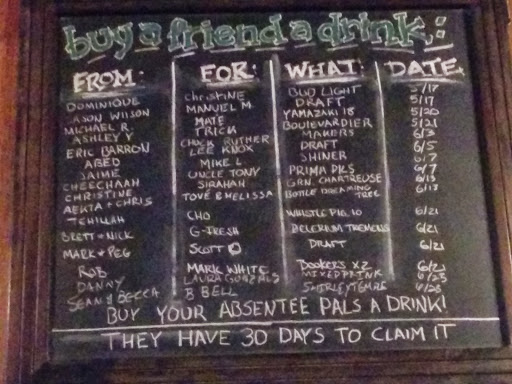 buy a friend a drink:
FROM: FOR: WHAT: DATE
DOMINIQUE Christine BUD LIGHT 5/17
JASON WILSON MANUEL M DRAFT 5/17
MICHAEL R. MATE YAMAZAKI 18 5/20
ASHLEY Y TRICK BOULEVARDIER 5/21
ERIC BARRON CHUCK RUTHER MAKERS 6/3
ABED LEE KNOX DRAFT 6/5
JAIME MIKE L SHINER 6/7
CHEECHAAH UNCLE TONY PRIMA PILS 6/7
CHRISTINE SIRAHAH GRN. CHARTREUSE 6/13
AEKTA + CHRIS TOVE & MELISSA BOTTLE DREAMING TREE 6/13
TEHILLAH CHO WHISTLE PIG 10 6/21
BRETT + NICK G-FRESH DELERIUM TREMENS 6/21
MARK + PEG SCOTT O DRAFT 6/21
ROB MARK WHITE BOOKERS X2 6/21
DANNY LAURA GONZALS MIXED DRINK 6/25
SEAN & BECCA B BELL SHIRLEY TEMPLE 6/28
BUY YOUR ABSENTEE PALS A DRINK!
THEY HAVE 30 DAYS TO CLAIM IT